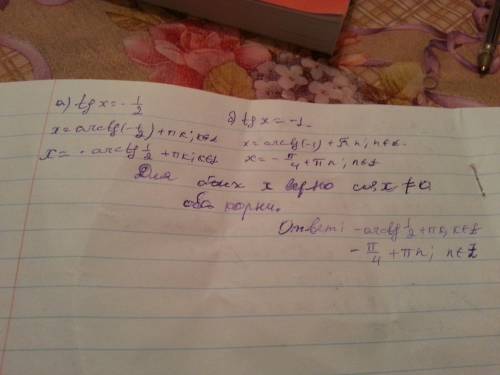 а) tg x = -1/2
x = arctg(-1/2) + πk; k∈Z
x = - arctg 1/2 + πk; k∈Z
б) tg x = -1.
x = arctg(-1) + πn; n∈Z.
x = -π/4 + πn; n∈Z
Для обоих x верно cos x ≠ 0
оба корни.
Ответ: -arctg 1/2 + πk, k∈Z
-π/4 + πn; n∈Z